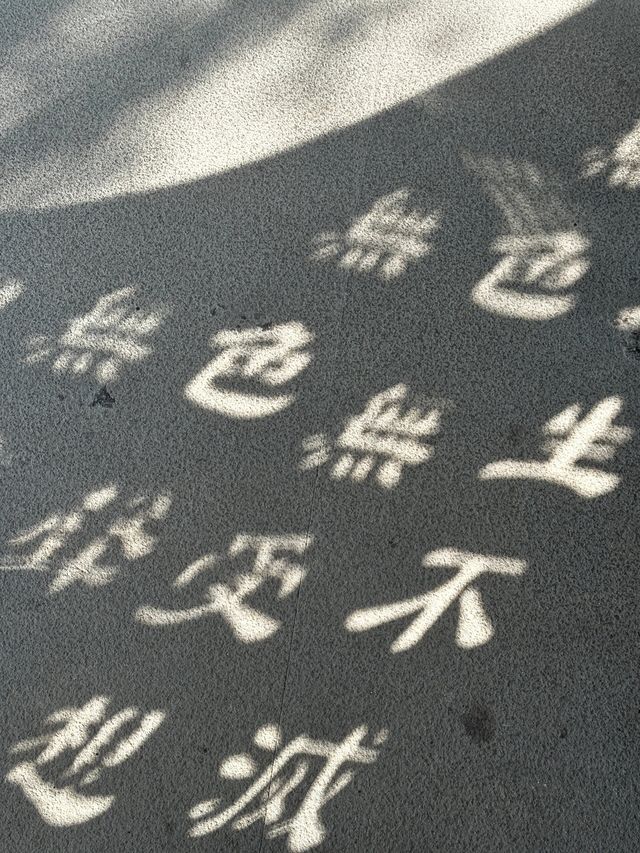 生不滅
色無受想
無色聲
無